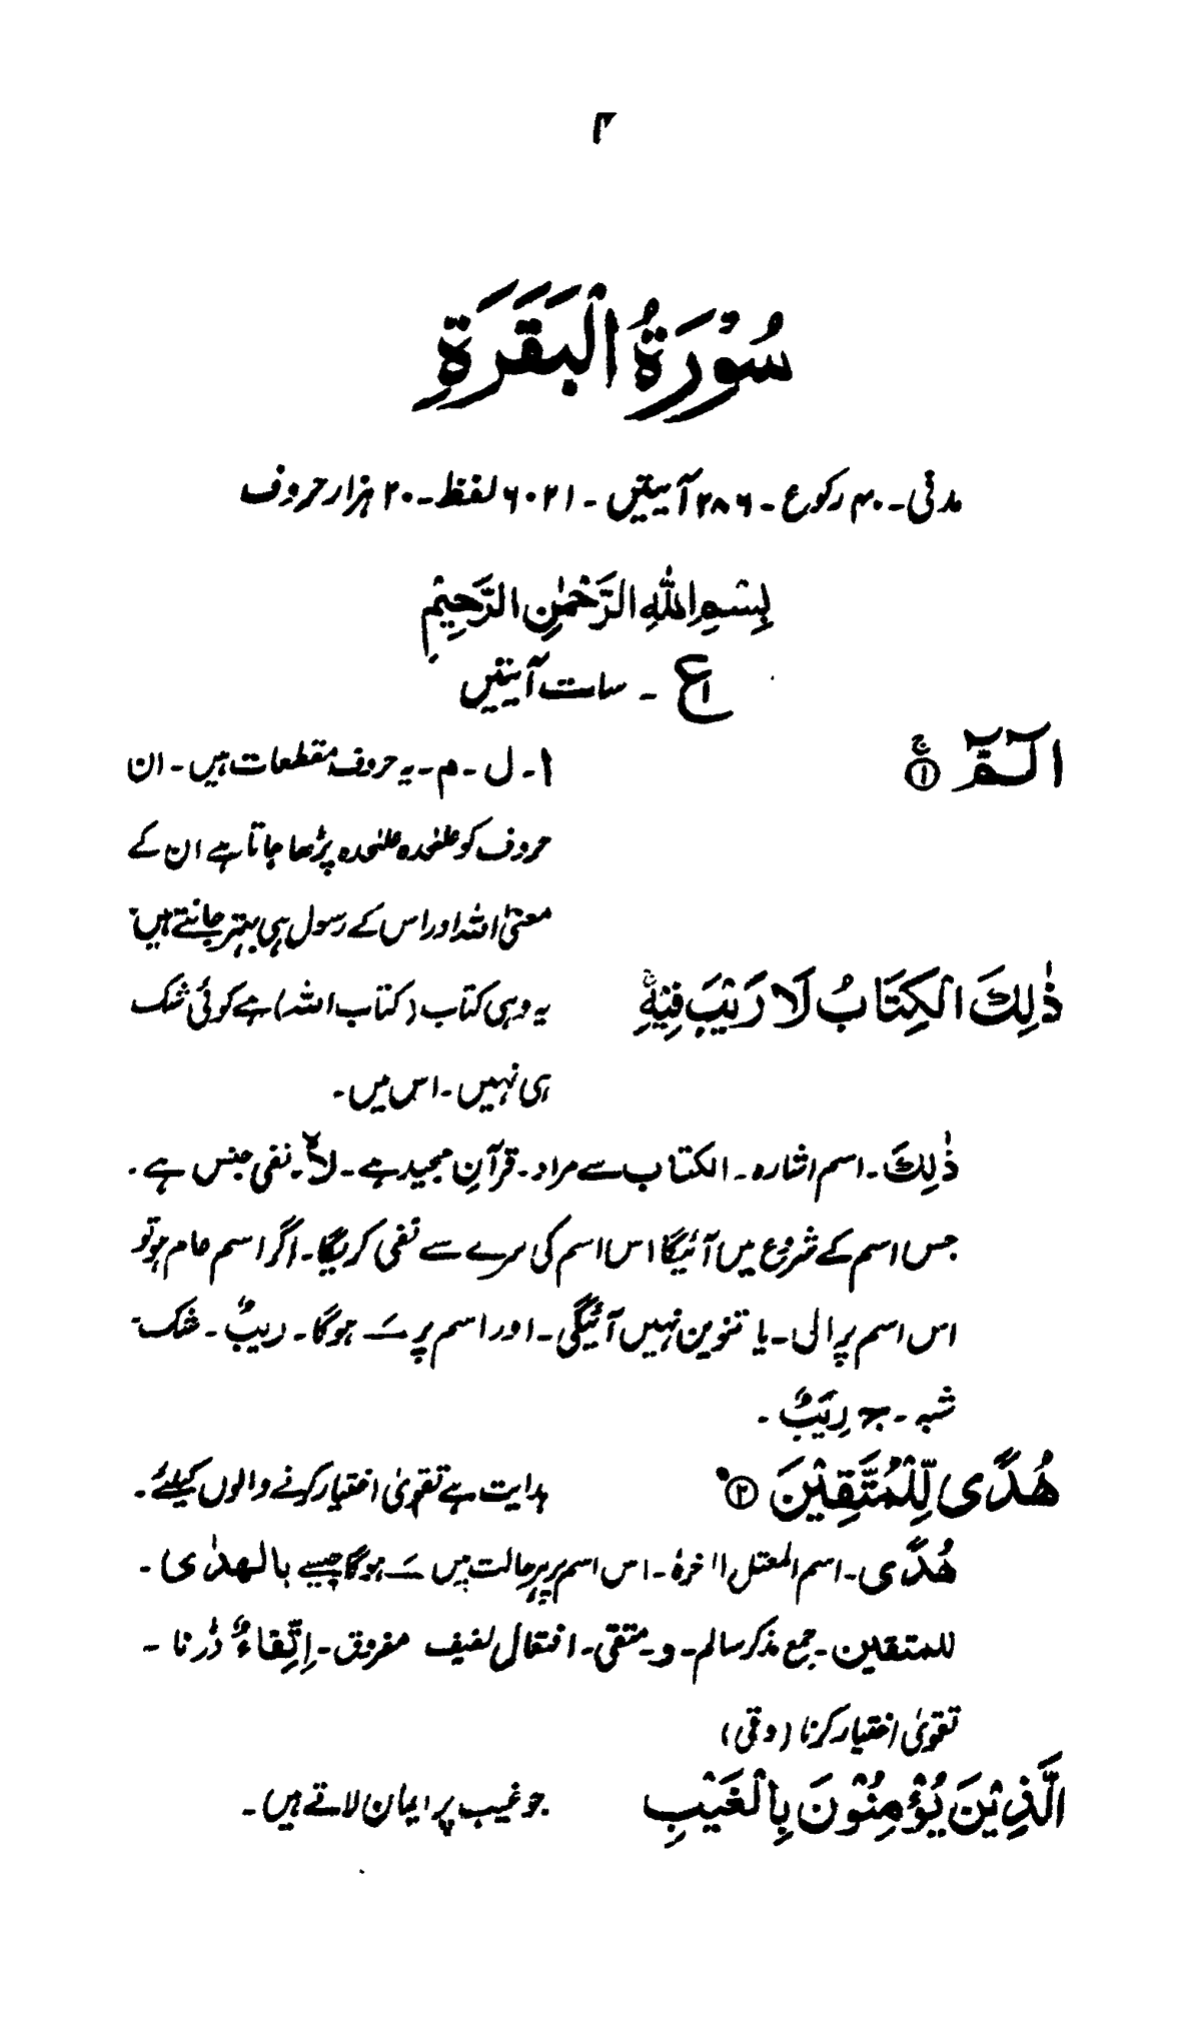 ۴
سُوْرَةُ الْبَقَرَةِ
مدنی۔ ۴۰ رکوع۔ ۲۸۶ آیتیں۔ ۶۰۲۱ لفظ۔ ۲۰ ہزار حروف
بِسْمِ اللّٰهِ الرَّحْمٰنِ الرَّحِيْمِ
ع ۱ ۔ سات آیتیں
الٓـمّٓ ۚ ① ا۔ ل۔ م۔ یہ حروف مقطعات ہیں۔ ان
حروف کو علٰحدہ علٰحدہ پڑھا جاتا ہے ان کے
معنیٰ اللہ اور اس کے رسول ہی بہتر جانتے ہیں
ذٰلِكَ الْكِتَابُ لَا رَيْبَ فِيْهِ ۛ یہ وہی کتاب (کتاب اللہ) ہے کوئی شک
ہی نہیں۔ اس میں۔
ذٰلِكَ۔ اسم اشارہ۔ الکتاب سے مراد۔ قرآنِ مجید ہے۔ لاَ۔ نفی جنس ہے۔
جس اسم کے شروع میں آئیگا اس اسم کی سرے سے نفی کریگا۔ اگر اسم عام ہو تو
اس اسم پر الی۔ یا تنوین نہیں آئیگی۔ اور اسم پر ــَـ ہوگا۔ ریبٌ۔ شک۔
شبہ۔ ج رِیَبٌ۔
هُدًى لِّلْمُتَّقِيْنَ ② ہدایت ہے تقویٰ اختیار کرنے والوں کیلئے۔
هُدًى۔ اسم المعتل الاخرہٗ۔ اس اسم پر ہر حالت میں ــَـ ہوگا جیسے بالهدٰى۔
للمتقین۔ جمع مذکر سالم۔ و۔ متقی۔ افتعال لفیف مفروق۔ اِتِّقاءٌ ڈرنا۔
تقویٰ اختیار کرنا (وقی)
الَّذِيْنَ يُؤْمِنُوْنَ بِالْغَيْبِ جو غیب پر ایمان لاتے ہیں۔